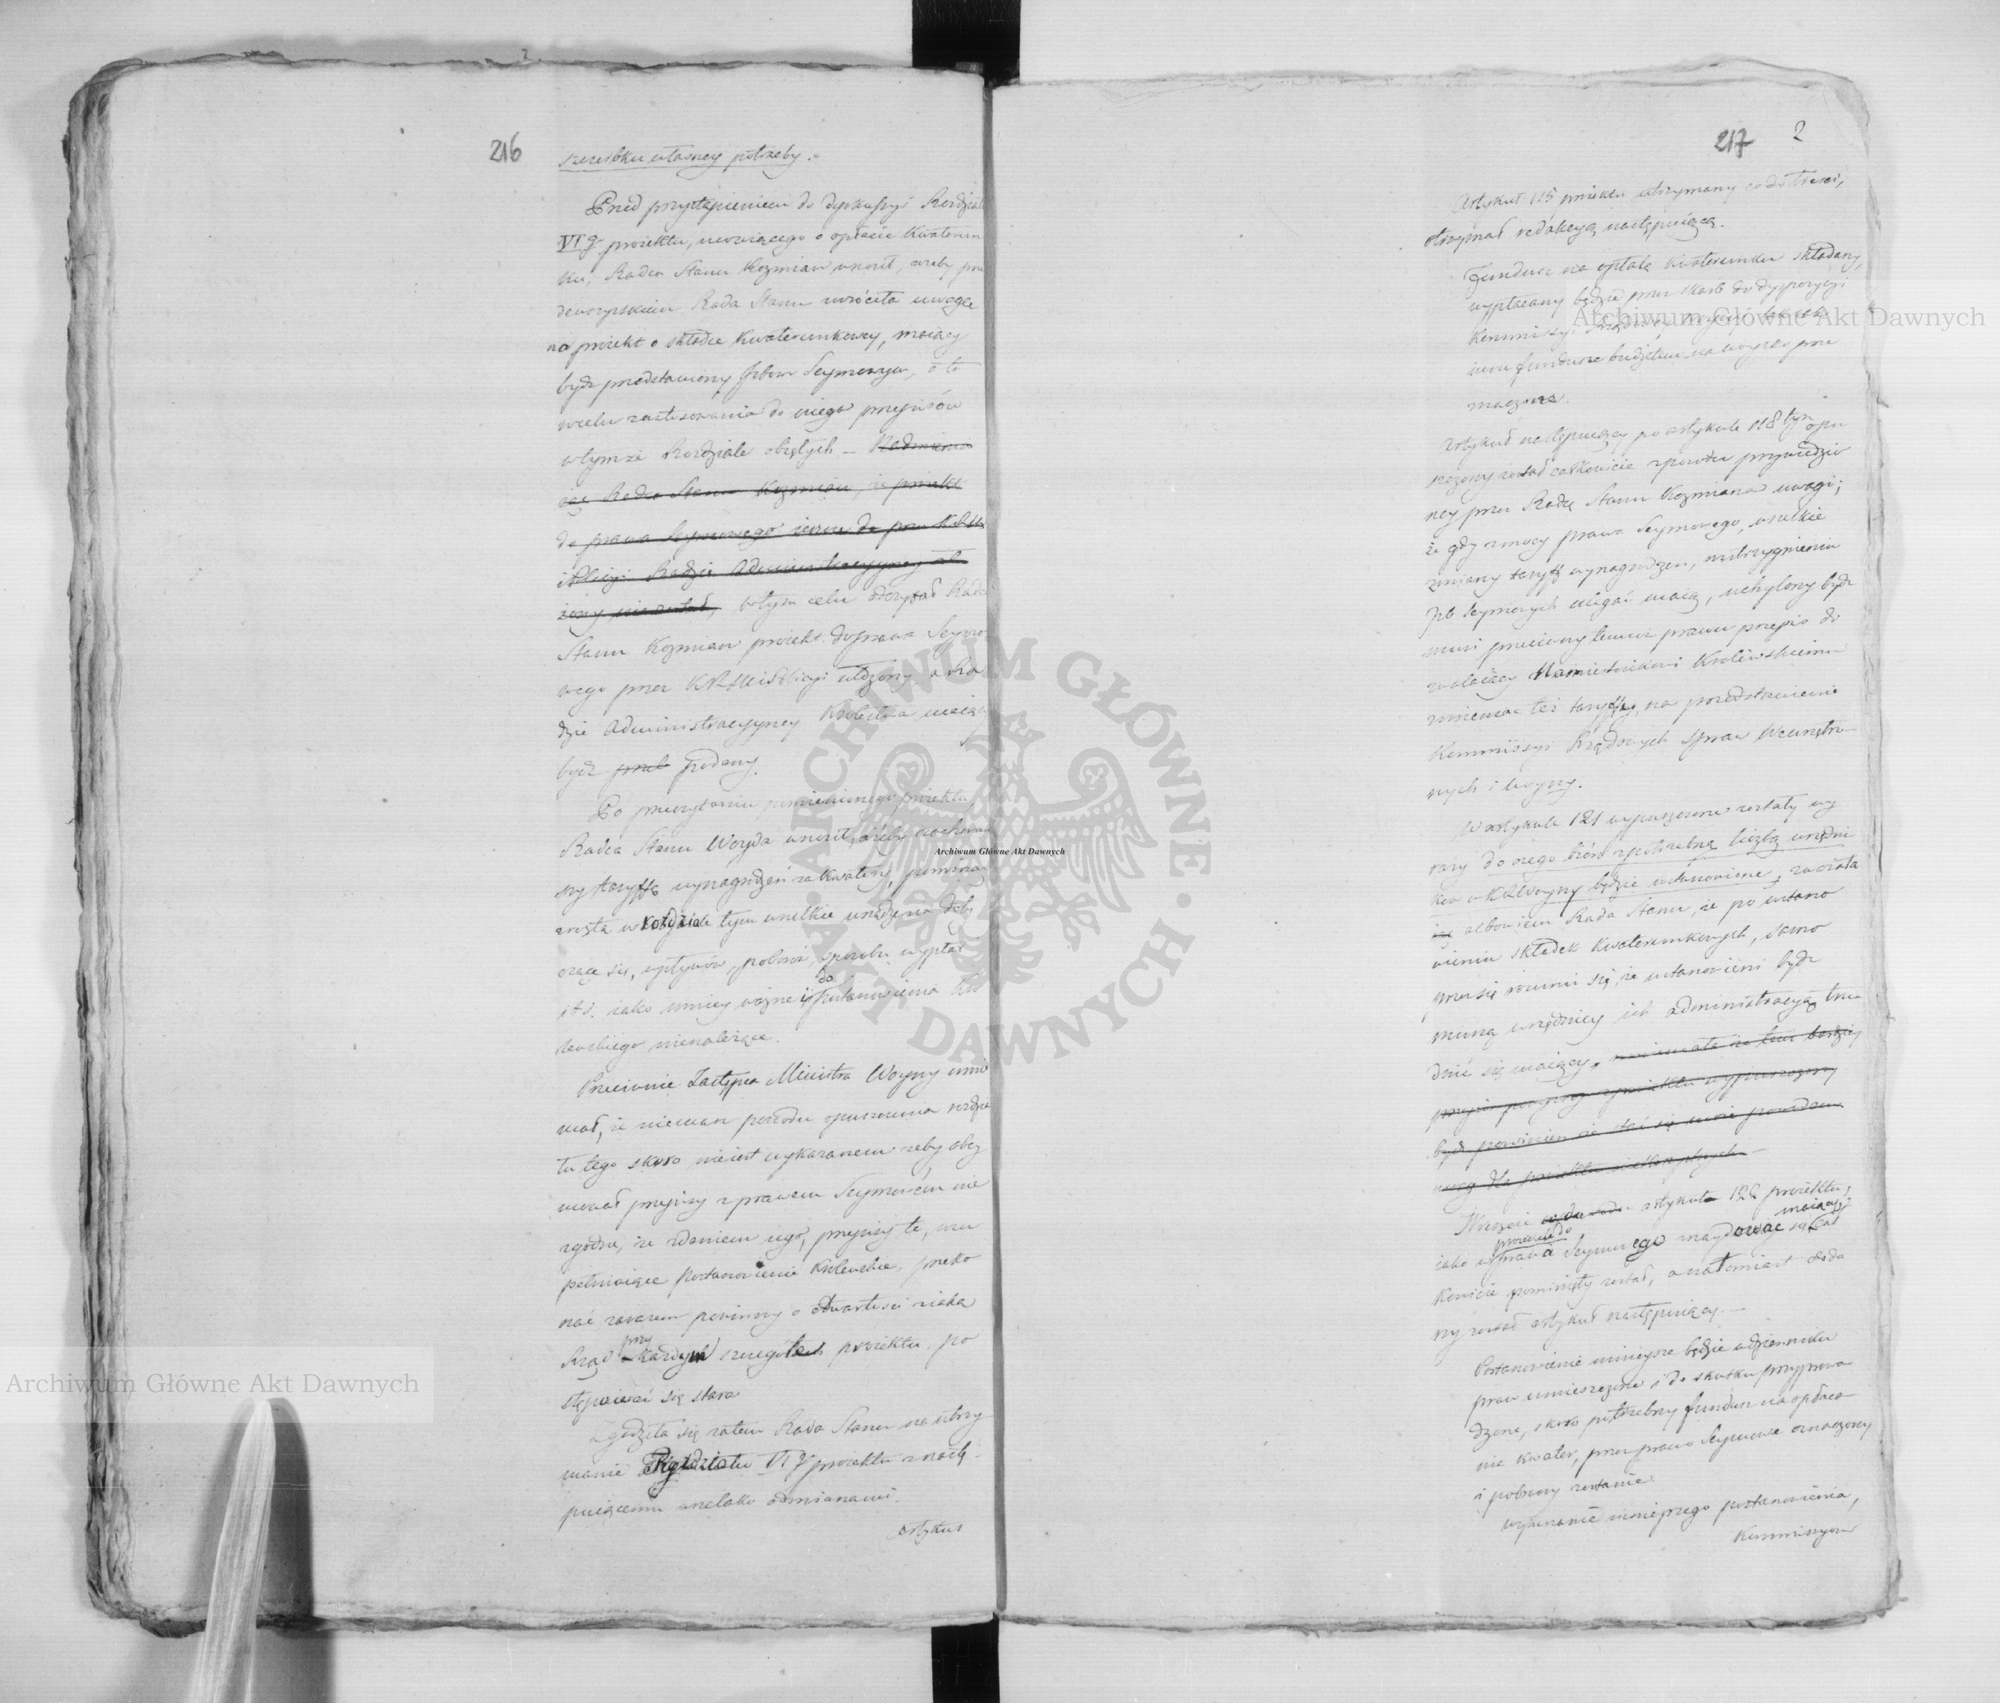 216
szczerbku własney potrzeby.
Przed przystąpieniem do dyskussyi Rozdziału
VIgo proiektu, mowiącego o opłacie Kwaterun
ku, Radca Stanu Kozmian wnosił, ażeby po
Rada Stanu zwróciła uwagę
na proiekt o składce Kwaterunkowey, maiący
bydz przedstawiony Izbom Seymowym, a to
w celu zastosowania do niego przepisów
w tymże Rozdziale obiętych —
Radca Stanu Kozmian, iż proiekt
do prawa Seymowego ieszcze
Radzie Administracyyney
żony nie został, w tym celu odczytał Radca
Stanu Kozmian proiekt do prawa Seymo
wego przez ułożony a Ra
dzie Administracyyney Królestwa maiący
bydz podany.
Po przeczytaniu pomienionego proiektu,
Radca Stanu Woyda wnosił, ażeby zachowaw
szy taryffę wynagrodzeń za kwatery, pominąć
zresztą w rozdziale tym wszelkie urządzenia
się, wpływów, poboru, sposobu wypłat
itd. iako mniey ważne i do postanowienia Kró
lewskiego nienależące.
Przeciwnie Zastępca Ministra Woyny mnie
mał, iż niemasz powodu opuszczenia rozdzia
łu tego skoro nie iest wykazanem żeby obey
mował przepisy z prawem Seymowem nie
zgodne, że zdaniem iego, przepisy te, uzu
pełniaiące Postanowienie Królewskie, przeko
nać zarazem powinny o otwartości z iaką
Rząd przy każdym szczególe proiektu, po
stępować się stara
Zgodziła się zatem Rada Stanu na utrzy
manie Rozdziału VIgo proiektu z nastę-
puiącemi wszelako odmianami.
Artykuł
217 2
Artykuł 115 proiektu utrzymany co do treści,
otrzymał redakcyą następuiącą.
Fundusz na opłatę Kwaterunku składany,
wypłacany będzie przez Skarb do dyspozycyi
Kommissyi Rządowey Woyny
fundusze budżetem na woysko prze
znaczone.
Artykuł następuiący po artykule 118tym opu
szczony został całkowicie z powodu przywiedzio
ney przez Radcę Stanu Kozmiana uwagi;
że gdy z mocy prawa Seymowego, wszelkie
zmiany taryff wynagrodzeń, rozstrzygnieniu
Izb Seymowych ulegać maią, uchylony bydz
musi przeciwny temuż prawu przepis do
zwalaiący Namiestnikowi Królewskiemu
zmieniać też taryffy, na przedstawienie
Kommissyi Rządowych Spraw Wewnętrz-
nych i Woyny.
W artykule 121 wypuszczone zostały wy
razy do czego biór z potrzebną liczbą urzędni
ków w KRWoyny będzie ustanowione, zważała
albowiem Rada Stanu, że po ustano
wieniu składek Kwaterunkowych, samo
przez się rozumi się, że ustanowieni bydz
muszą urzędnicy ich administracyą tru
dnić się maiący.
przepis powyższy z proiektu wypuszczony
bydz powinien
Nareszcie artykuł 122 proiektu,
iako w proiekcie do prawa Seymowego znaydować się maiący, cał
kowicie pominięty został, a natomiast doda
ny został artykuł następuiący. —
Postanowienie ninieysze będzie w dzienniku
praw umieszczone i do skutku przyprowa
dzone, skoro potrzebny fundusz na opłaca-
nie kwater, przez prawo Seymowe oznaczony
i pobrany zostanie.
Wykonanie ninieyszego postanowienia,
Kommissyom
Archiwum Główne Akt Dawnych
Archiwum Główne Akt Dawnych
Archiwum Główne Akt Dawnych
ARCHIWUM GŁÓWNE AKT DAWNYCH